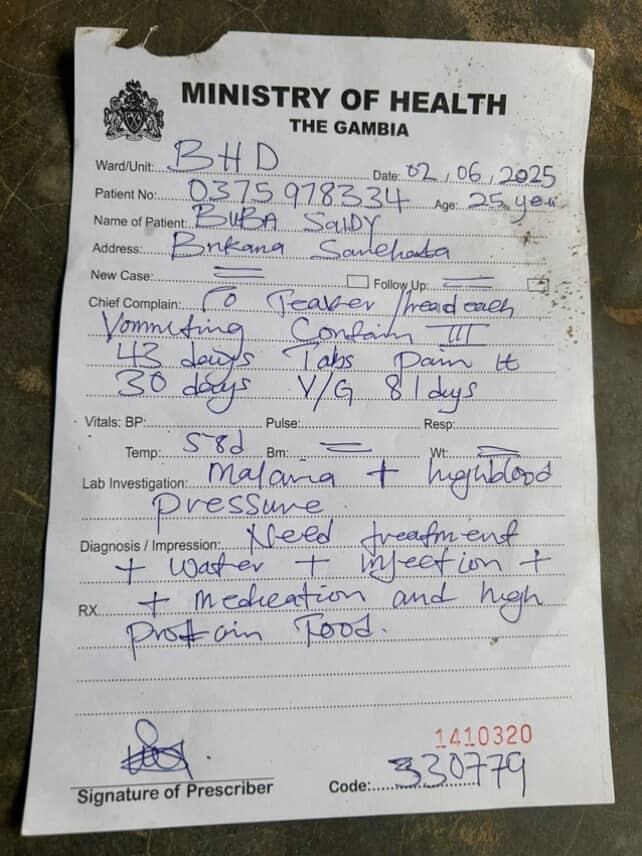 MINISTRY OF HEALTH
THE GAMBIA
Ward/Unit: BHD Date: 02, 06, 2025
Patient No: 0375978334 Age: 25 yeu
Name of Patient: BUBA SaIDY
Address: Bnkana
New Case: Follow Up:
Chief Complain: To Feaver / head each
Vommiting Contain III
43 days Tabs pain It
30 days V/G 81 dys
Vitals: BP: Pulse: Resp:
Temp: 58d Bm: Wt:
Lab Investigation: Malaria + high blood
pressure
Diagnosis / Impression: Need treatment
+ water + injection +
RX + medication and high
Food.
1410320
Signature of Prescriber Code: 330779